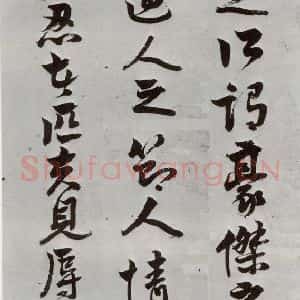 之所謂豪傑之
過人之節人情
忍者匹夫見辱
Shufawang.CN